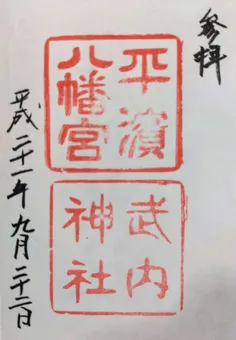 參拝
平濱
八幡宮
武内
神社
平成二十一年九月二十二日